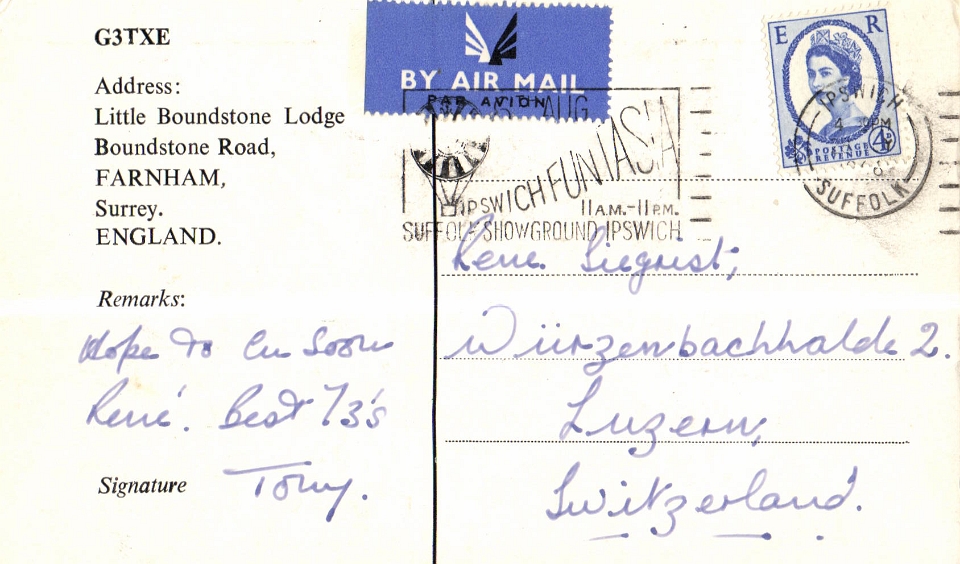 G3TXE
Address:
Little Boundstone Lodge
Boundstone Road,
FARNHAM,
Surrey.
ENGLAND.
Remarks:
Hope to Cu Soon
René. Best 73's
Signature Tony.
BY AIR MAIL
PAR AVION
AUG
IPSWICH FUNTASIA
11 A.M.-11 P.M.
SUFFOLK SHOWGROUND IPSWICH
E R
POSTAGE
REVENUE
4D
IPSWICH
PM
SUFFOLK
Rene. Siegrist;
Würzenbachhalde 2.
Luzern,
Switzerland.